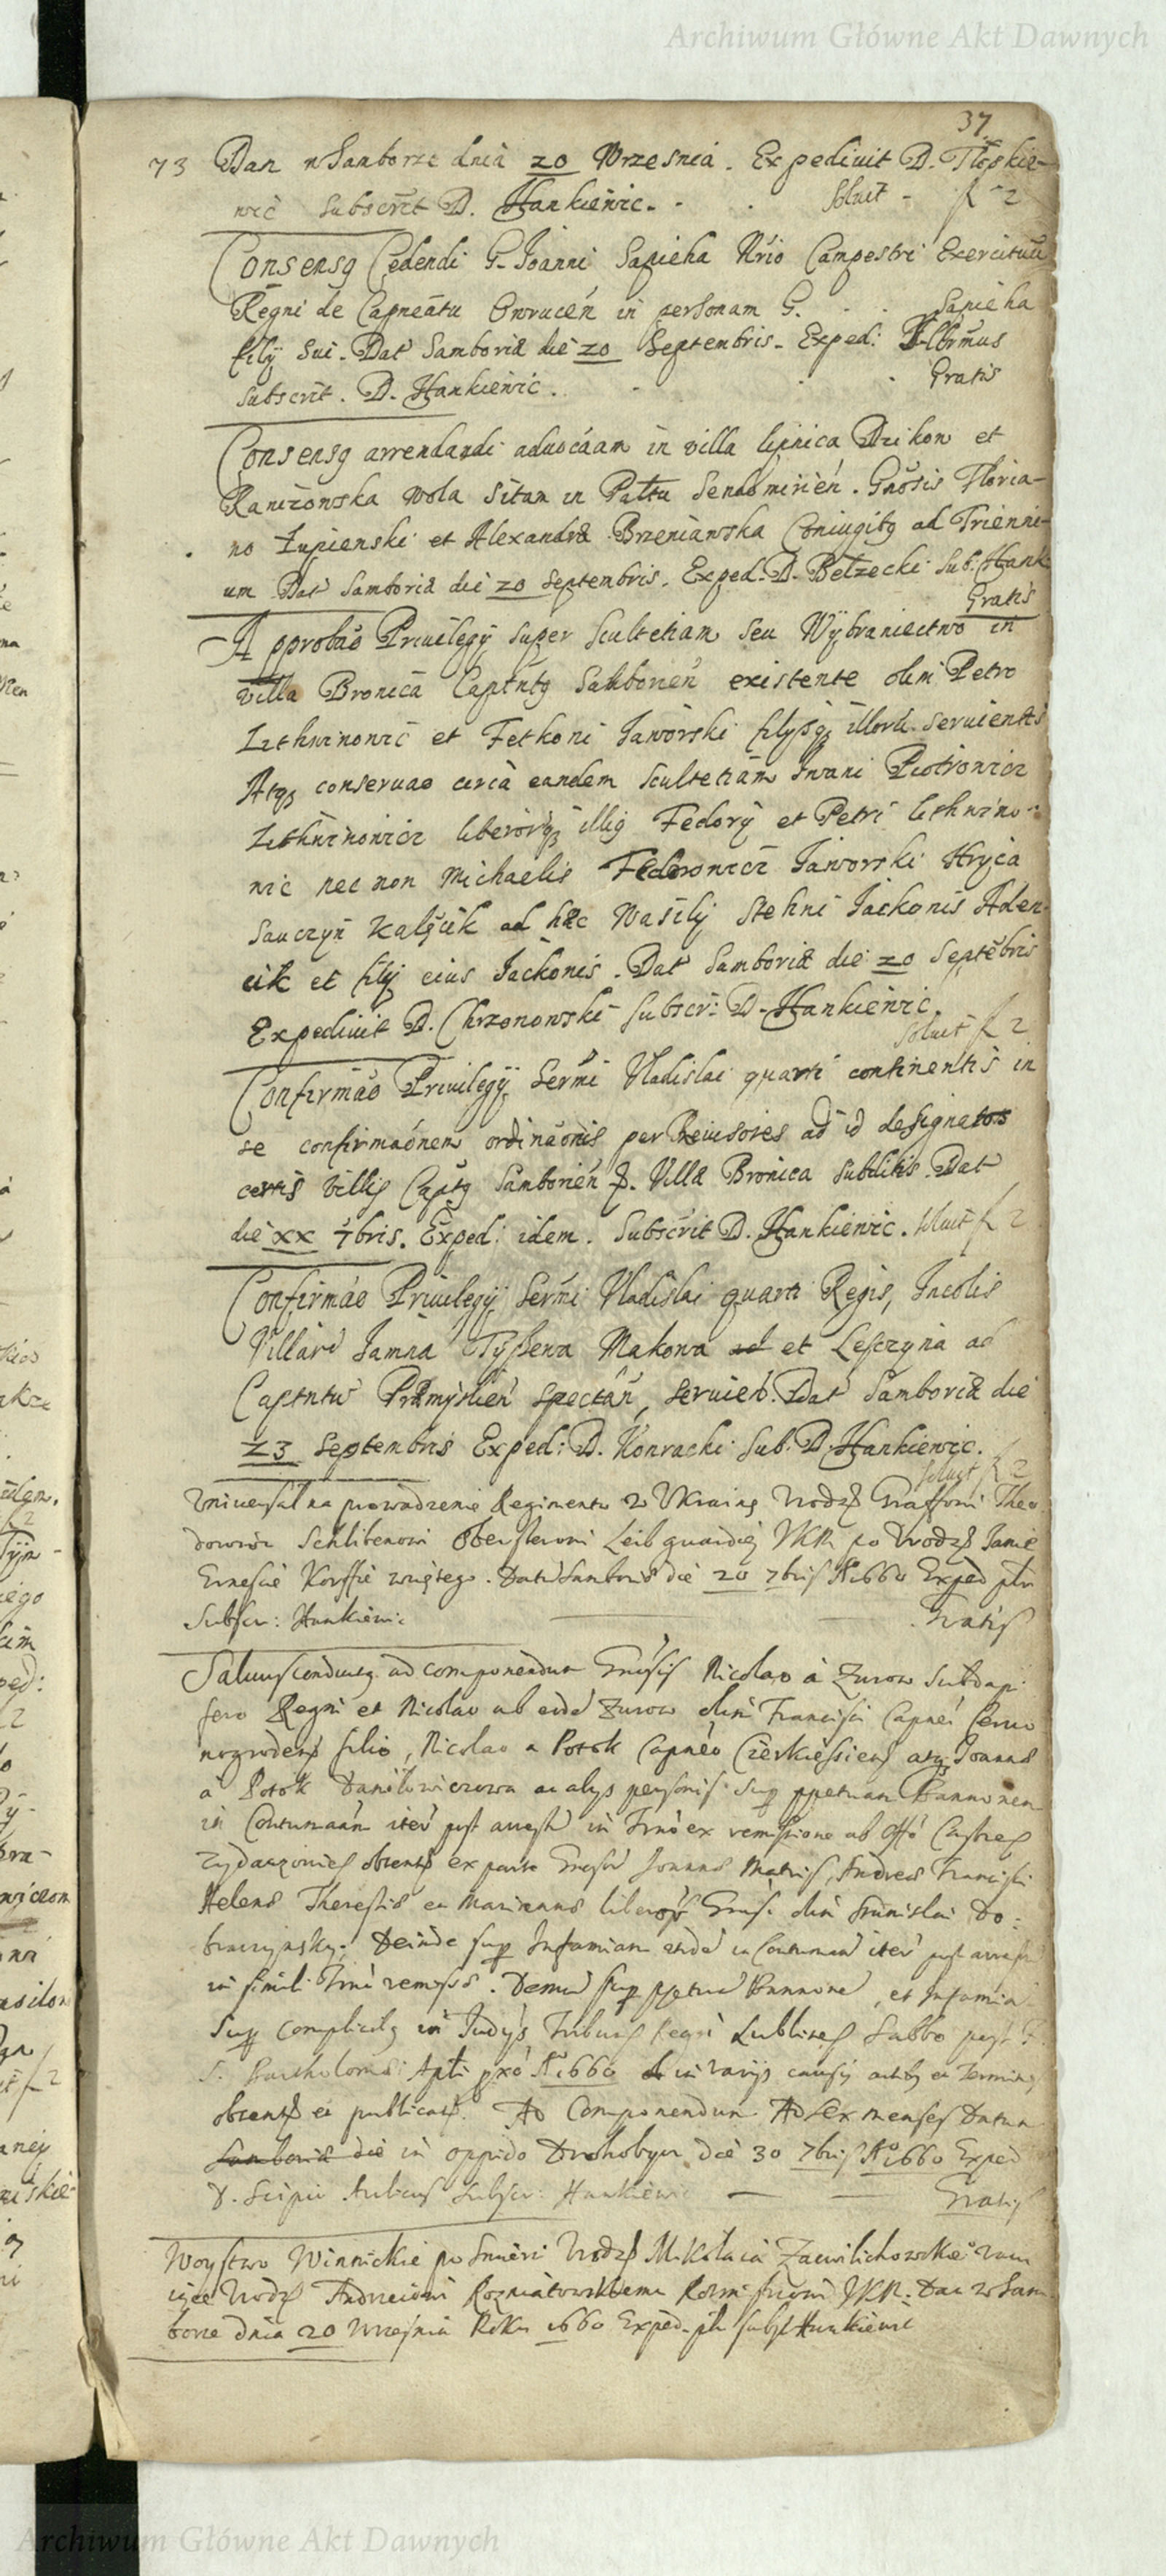 Archiwum Główne Akt Dawnych
37
73 Dan w Samborze dnia 20 Wrzesnia. Expedivit D. Tłoskie-
wic subscrit D. Hankiewic. Soluit f 2
Consensq Cedendi G. Joanni Sapieha Nrio Campestri Exercituũ
Regni de Capneatu Owrucen in personam G. Sapieha
filÿ sui. Dat Samboriæ die 20 Septembris. Exped: Illŕmus
subscrit. D. Hankiewic. Gratis
Consensq arrendandi aduocãam in villa lipnica Dzikow et
Ranizowska wola sitam in Paltu Sendomirien. Gnosis Floria-
no Łupienski et Alexandræ Brzenianska Coniugibq ad Trienni-
um Dat Samboriæ die 20 Septembris. Exped. D. Bełzecki Sub. Hank.
Gratis
Approbao Priuilegÿ super scultetiam seu Wÿbraniectwo in
villa Bronica Captntq Samborien existente olim Petro
Lithwinowic et Fetkoni Jaworski filÿsq illorũ seruientis
Atq conseruao circa eandem scultetiam Iwani Piotrowicz
Lithwinowicz liberorq illiq Fedorÿ et Petri lithwino-
wic nec non Michaelis Fedorowicz Jaworski Hryca
Sauczyn Kalscik ad hæc Wasilÿ Stehni Jackonis Aden-
cik et filÿ eius Jackonis. Dat Samboriæ die 20 Septẽbris
Expedivit D. Chrzonowski Subscr: D. Hankiewic.
Soluit f 2
Confirmao Priuilegÿ Sermi Vladislai quarti continentis in
se confirmaonem ordinaonis per Reuisores ad id designatos
certis villis Captq Samborien p. Villæ Bronica subditis. Dat
die xx 7bris. Exped: idem. Subscrit D. Hankiewic. Soluit f 2
Confirmao Priuilegÿ Sermi Vladislai quarti Regis, Incolis
Villarũ Jamna Tÿssowa Makowa ad et Lesczyna ad
Captntũ Præmÿslien spectan, seruien. Dat Samboriæ die
23 Septembris Exped: D. Konracki Sub. D. Hankiewic.
Soluit f 2
Uniuersał na prowadzenie Regimentu w Ukrainę Urodz Graffowi Theo
dorowi Schlibenowi Obersterowi Leib guardiej JKM po Urodz Janie
Ernescie Korffie wziętego. Datũ Samboriæ die 20 7bris Ao 1660 Exped
Subscr: Hankiewic Gratis
Saluusconductq ad componendum Gnosis Nicolao a Zurow Subdapi
fero Regni et Nicolao ab eadẽ Zurow olim Francisci Capnei Czerwo
nogrodens filio, Nicolao a Potok Capneo Czerkassiens atq Joanna
a Potok Daniłowiczowa ac alÿs personis sup ppetuam Bannionem
in Contumaam itẽ post arrestũ in Trno ex remissione ab Offo Castren
Zydaczouien obtentæ ex parte Gnosæ Joannæ Matris, Andreæ Francisci
Helenæ Theresiæ et Mariannæ liberorũ Gnosi olim Stanislai Do:
braczynsky: Deinde sup Infamiam eadẽ in Contumaam itẽ post arrestũ
in simili Trno remisso. Demũ sup ppetua Bannione, et Infamia
sup complicibq in Judÿs Tribunls Regni Lublinens Sabbo post F.
S. Bartholomæi Apli pxo Ao 1660 in varÿs causis actibq et Terminis
obtentis et publicatis. Ad Componendum Ad sex menses Datum
Samboriæ die in oppido Drohobycz die 30 7bris Ao 1660 Exped
D. Scipio Aulicus Subscr: Hankiewic Gratis
Woystwo Winnickie po smierci Urodz Mikołaia Zacwilichowskie
Urodz Andrzeiowi Rozniatowskiemu Rotmistrzowi JKM. Dan w Sam
borze dnia 20 Wrzesnia Roku 1660 Exped. subst Hankiewic
Archiwum Główne Akt Dawnych